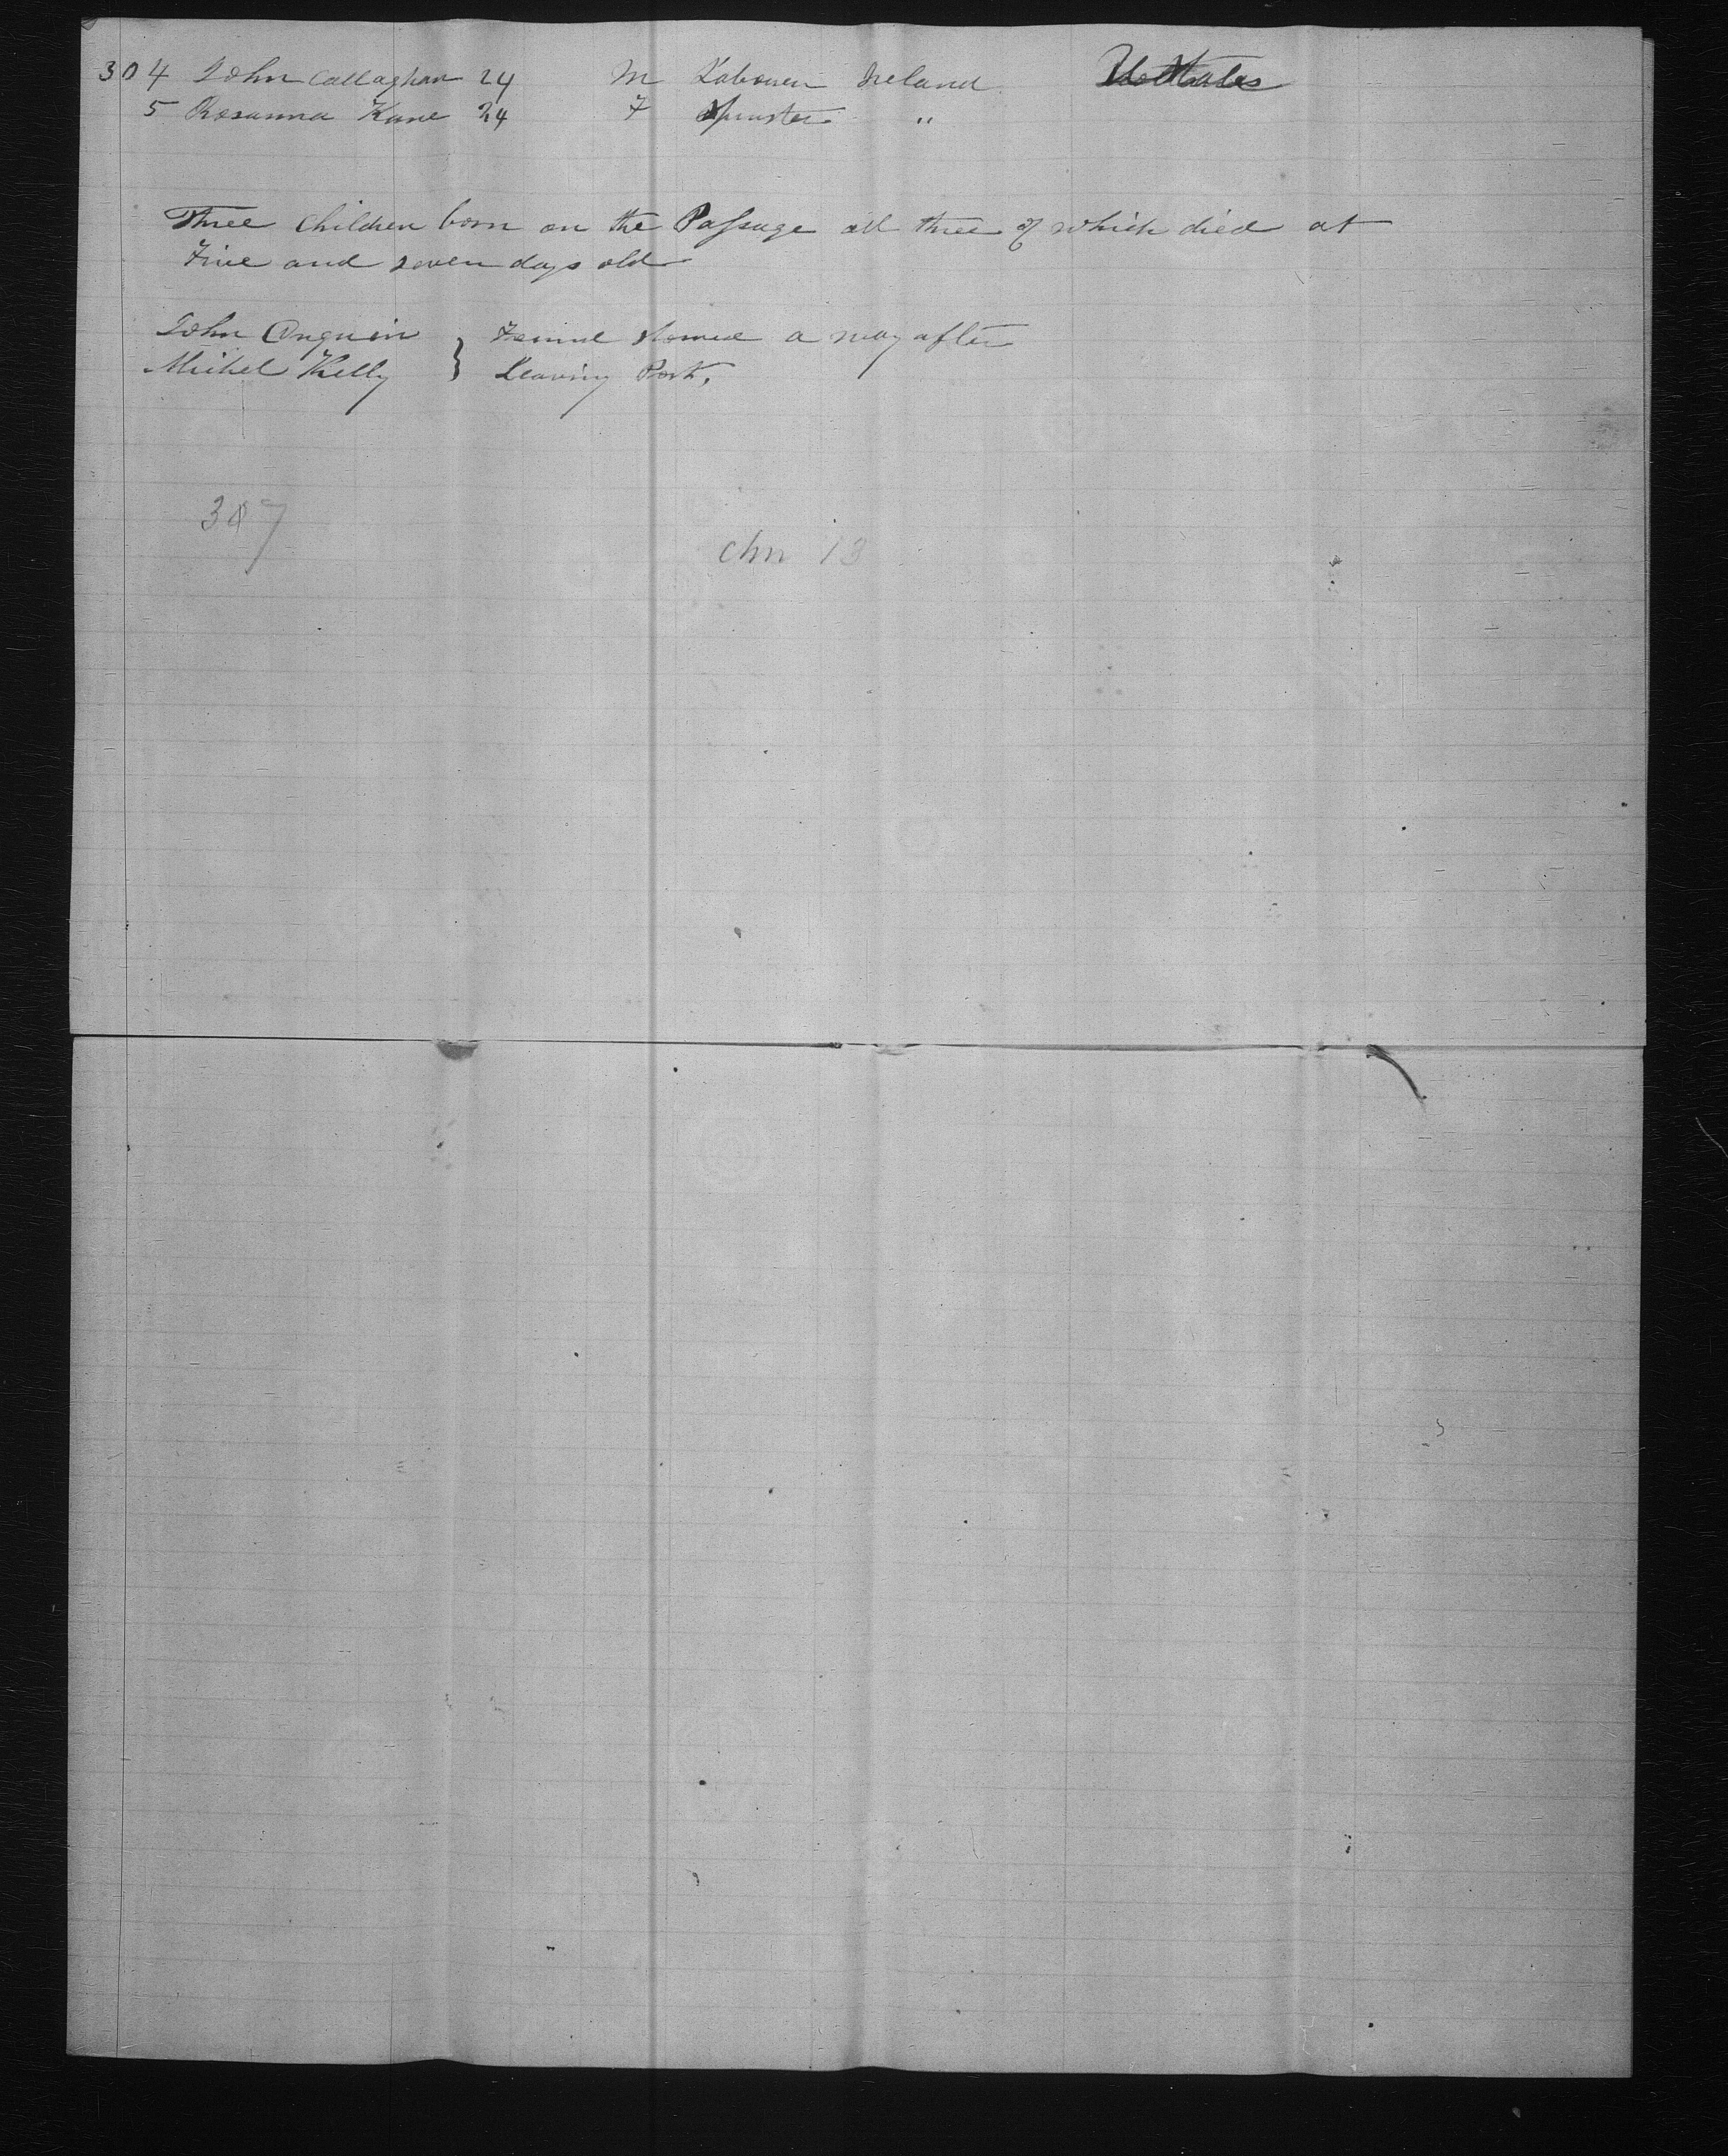 304 John Callaghan 24 M Labourer Ireland U States
5 Rosanna Kane 24 F Spinster "
Three children born on the Passage all three of which died at
Five and seven days old
John Conquin } Found stowed a way after
Michel Kelly } Leaving Port.
307
chn 13